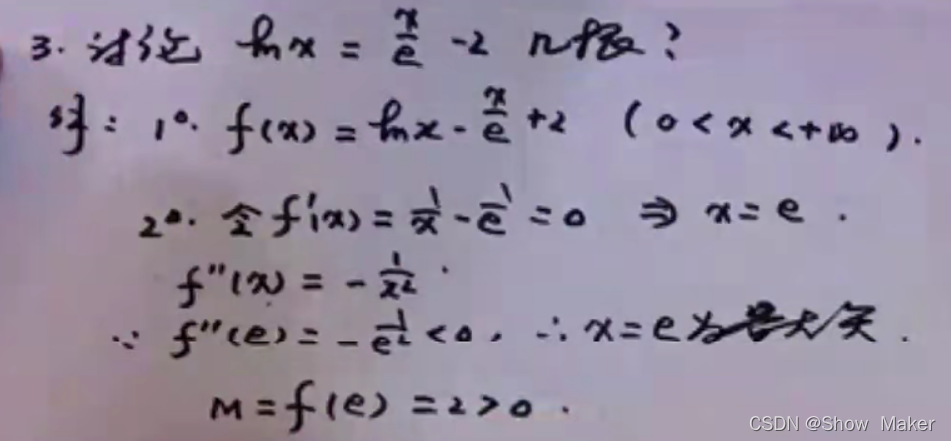 3. 讨论 ln x = x/e - 2 几根?
解: 1°. f(x) = ln x - x/e + 2 (0 < x < +∞).
2°. 令 f'(x) = 1/x - 1/e = 0 ⇒ x = e.
f''(x) = - 1/x².
∵ f''(e) = - 1/e² < 0, ∴ x = e 为最大点.
M = f(e) = 2 > 0.
CSDN @Show Maker